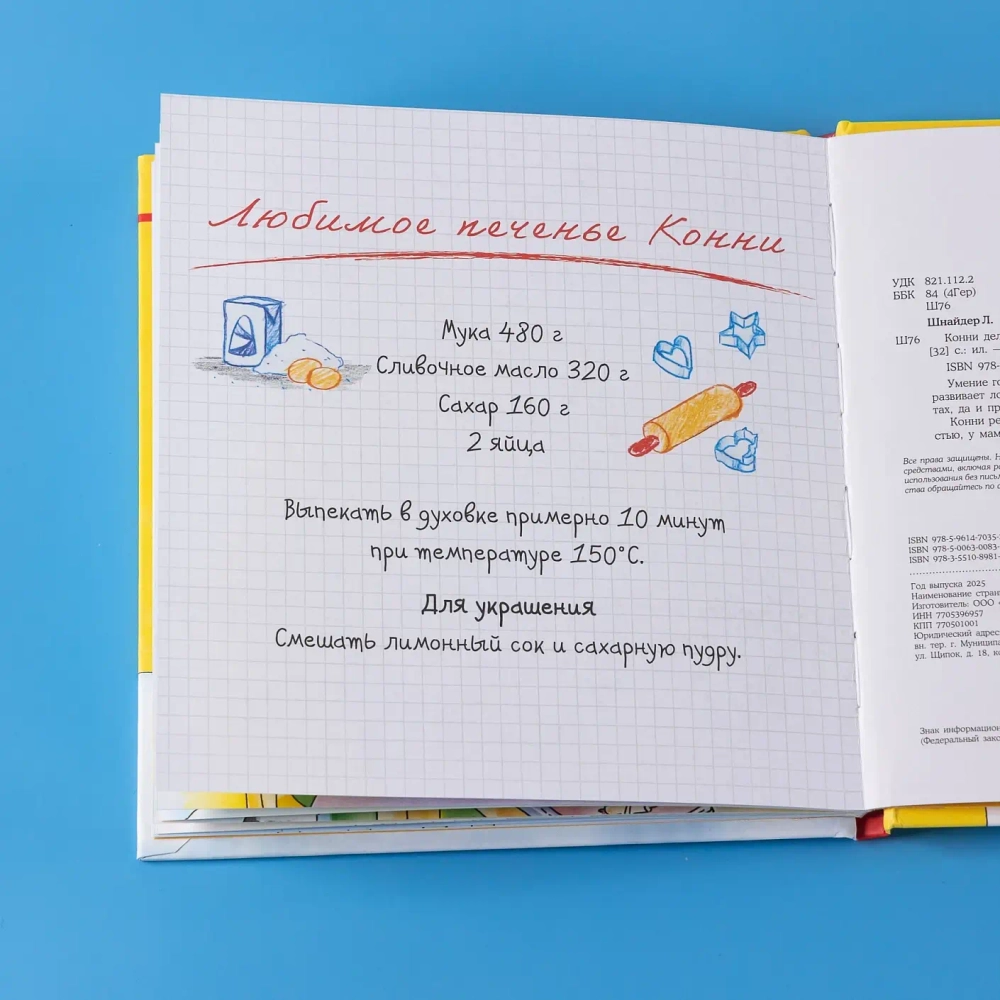 Любимое печенье Конни
Мука 480 г
Сливочное масло 320 г
Сахар 160 г
2 яйца
Выпекать в духовке примерно 10 минут
при температуре 150°С.
Для украшения
Смешать лимонный сок и сахарную пудру.
УДК 821.112.2
ББК 84 (4Гер)
Ш76
Шнайдер Л.
Ш76 Конни
[32] с.: ил. —
ISBN 978-
Умение
развивает
тах, да и
Конни
стью, у
Все права защищены.
средствами, включая
использования без
ства обращайтесь по
ISBN 978-5-9614-7035-
ISBN 978-5-0063-0083-
ISBN 978-3-5510-8981-
Год выпуска 2025
Наименование
Изготовитель: ООО
ИНН 7705396957
КПП 770501001
Юридический
вн. тер. г.
ул. Щипок, д. 18,
Знак
(Федеральный